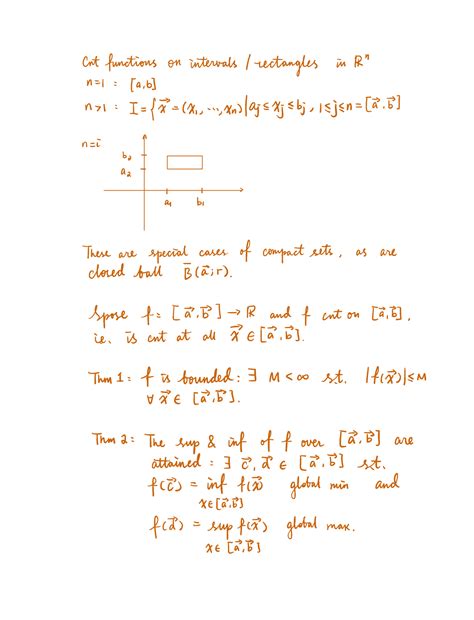 Cnt functions on intervals / rectangles in ℝⁿ
n=1 : [a,b]
n>1 : I = { x⃗ = (x₁, ..., xₙ) | aⱼ ≤ xⱼ ≤ bⱼ, 1 ≤ j ≤ n = [a⃗, b⃗]
n=i
b₂
a₂
a₁ b₁
These are special cases of compact sets, as are
closed ball B̄(a⃗; r).
Spose f: [a⃗, b⃗] → ℝ and f cnt on [a⃗, b⃗],
i.e. is cnt at all x⃗ ∈ [a⃗, b⃗].
Thm 1: f is bounded: ∃ M < ∞ s.t. |f(x⃗)| ≤ M
∀ x⃗ ∈ [a⃗, b⃗].
Thm 2: The sup & inf of f over [a⃗, b⃗] are
attained: ∃ c⃗, d⃗ ∈ [a⃗, b⃗] s.t.
f(c⃗) = inf f(x⃗) global min and
x∈[a⃗,b⃗]
f(d⃗) = sup f(x⃗) global max.
x∈[a⃗,b⃗]